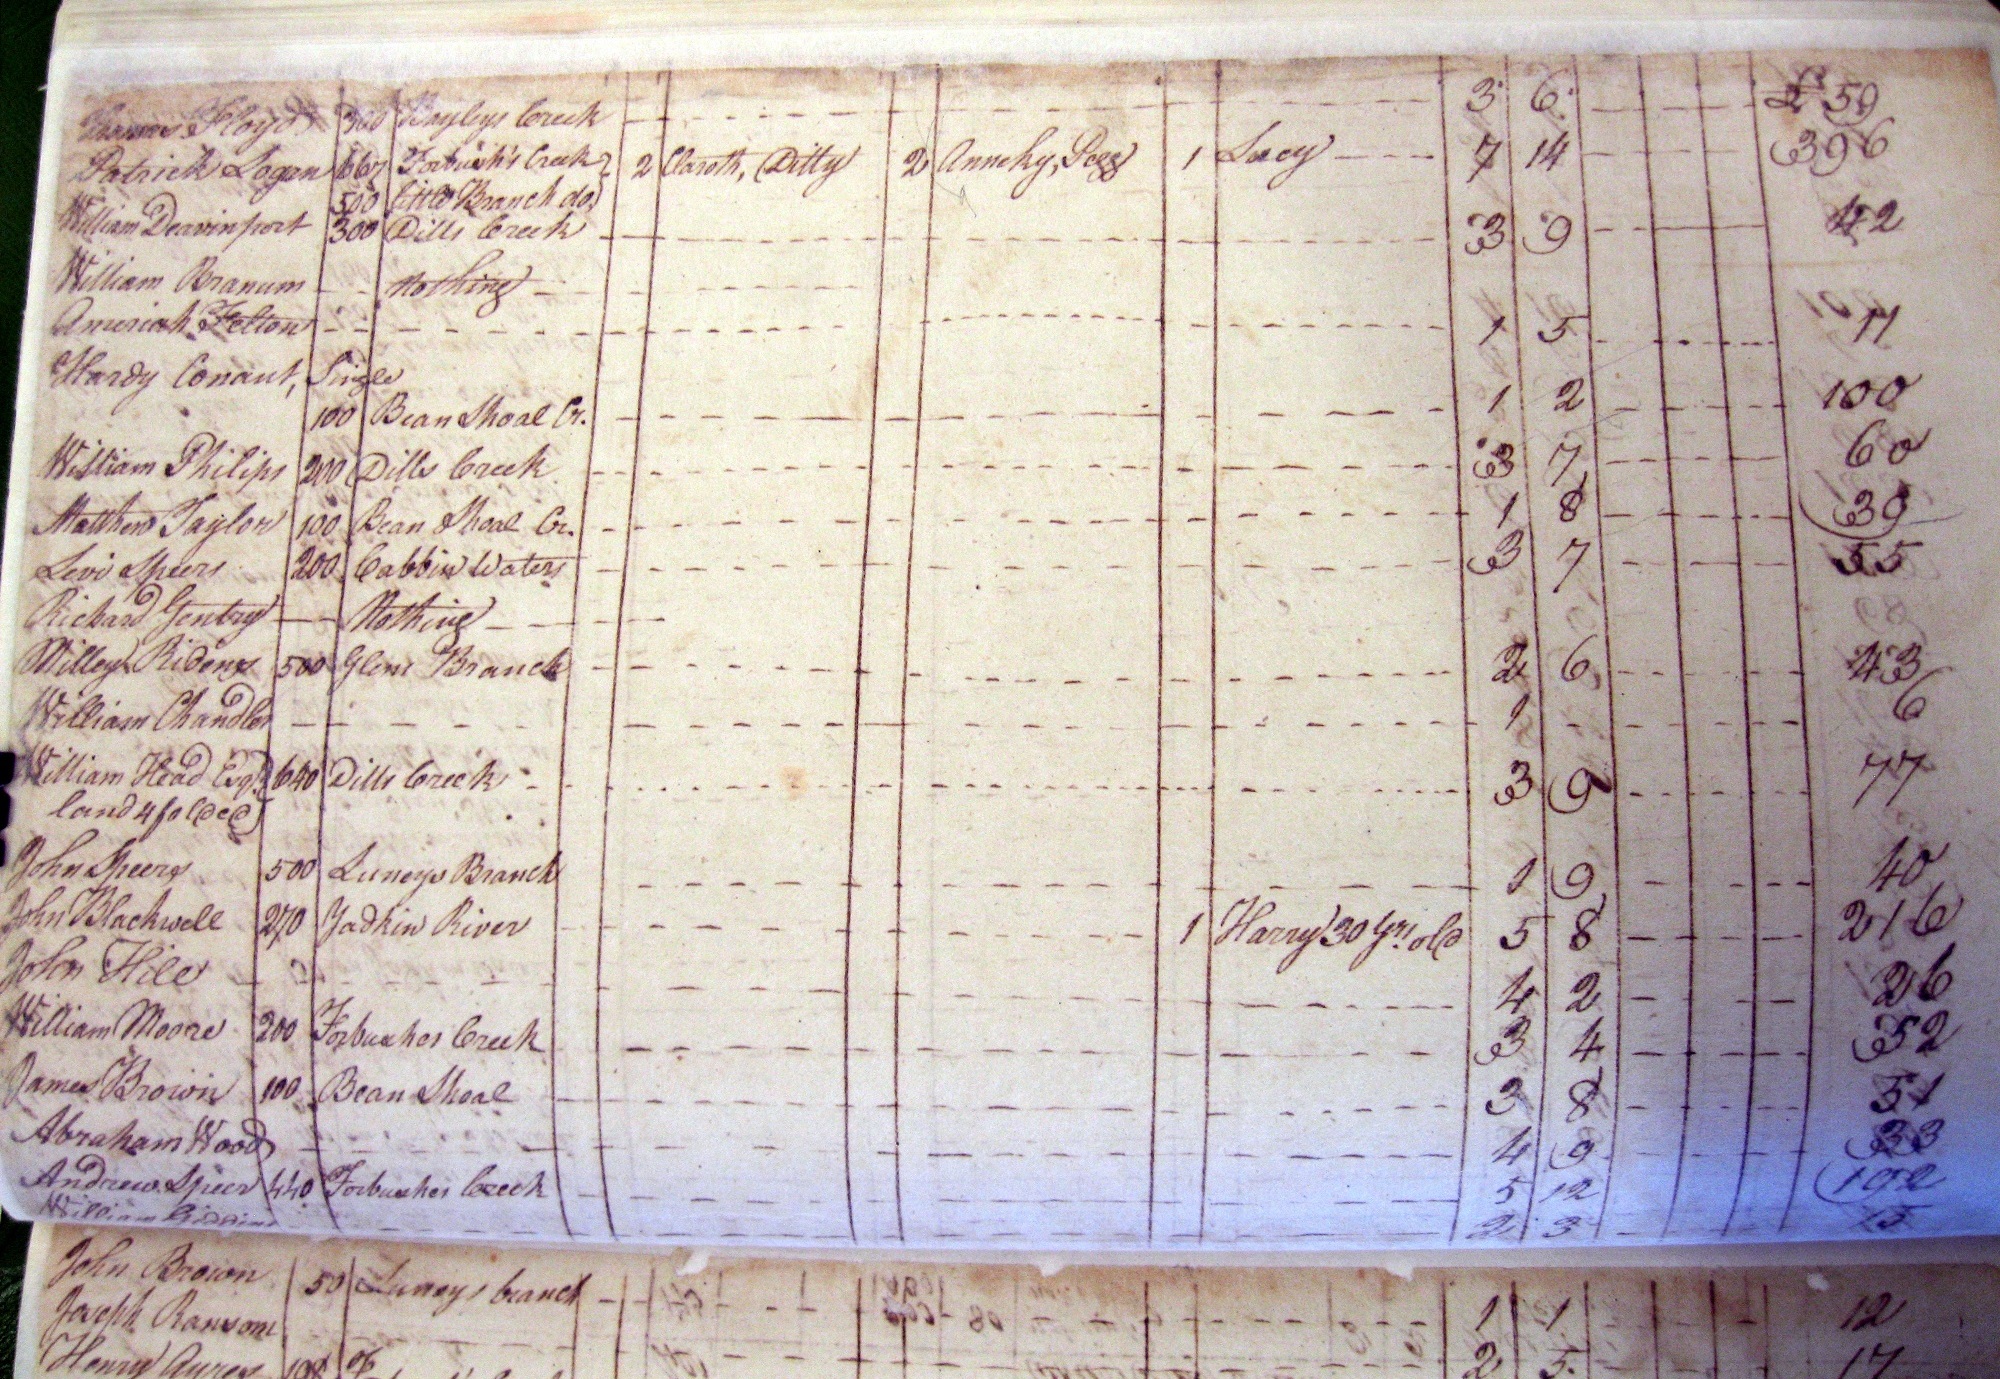 Floyd 300 Bayleys Creek 3 6 £ 59
Patrick Logan 667 Forbush's Creek 2 Caroth, Dilly 2 Anneky, Pegg 1 Lucy 7 14 396
500 little Branch do.
William Deavinport 300 Dills Creek 3 9 42
William Branum Nothing
Ameriah Felton 1 5 11
Hardy Conaut, Single
100 Bean Shoal Cr. 1 2 100
William Philips 200 Dills Creek 3 7 60
Matthew Taylor 100 Bean Shoal Cr. 1 8 39
Levi Speers 200 Cabbin Waters 3 7 55
Richard Gentry Nothing
Willey Ridens 500 Glens Branch 2 6 43
William Chandler 1 6
William Head Esqr. 640 Dills Creek 3 9 77
land 4 folded
John Speers 500 Luneys Branch 1 9 40
John Blackwell 270 Yadkin River 1 Harry 30 yrs old 5 8 216
John Hile 4 2 26
William Moore 200 Forbushes Creek 3 4 52
James Brown 100 Bean Shoal 3 8 51
Abraham Wood 4 9 33
Andrew Speer 440 Forbushes Creek 5 12 192
William 2 3 15
John Brown 50 Luneys branch 1 1 12
Joseph Ransom
Henry Ayres 2 5 17